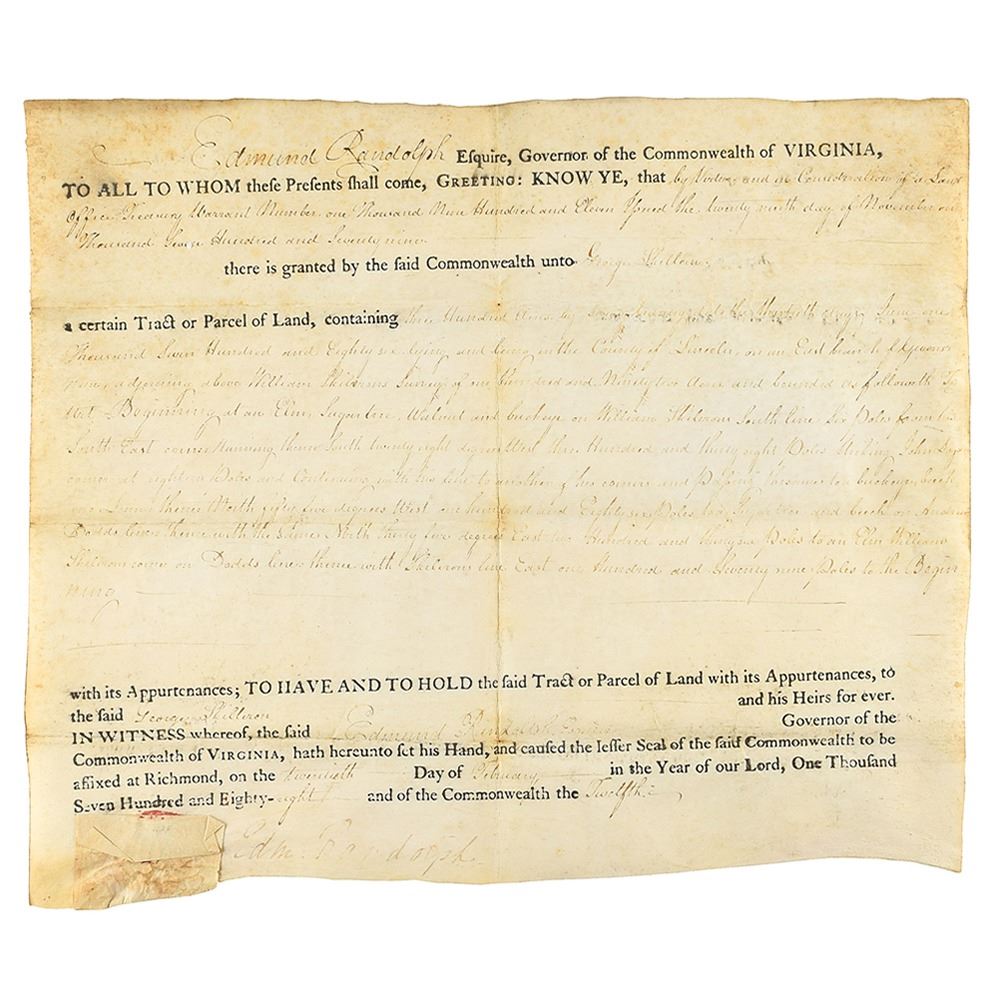 Edmund Randolph Esquire, Governor of the Commonwealth of VIRGINIA,
TO ALL TO WHOM theſe Preſents ſhall come, GREETING: KNOW YE, that by Virtue and in Consideration of a Land
Office Treasury Warrant Number one Thousand Nine Hundred and Eleven Issued the twenty ninth day of November one
Thousand Seven Hundred and Seventy nine
there is granted by the ſaid Commonwealth unto George
a certain Tract or Parcel of Land, containing three Hundred Acres by Survey date the day of June one
Thousand Seven Hundred and Eighty six lying and being in the County of Lincoln on an East branch of
adjoining above William Survey of one Hundred and Ninety two Acres and bounded as followeth To
Wit Beginning at an Elm, Sugartree, Walnut and buckeye on William South line Six Poles from his
South East corner Running thence South twenty eight degrees West three Hundred and thirty eight Poles Striking John
corner at eighteen Poles and Continuing with his line to another of his corners and Passing the same to a buckeye, beech
and thence North fifty five degrees West one hundred and Eighty six Poles to and beech on Andrew
Dodds line thence with the same North thirty five degrees East two Hundred and Poles to an Elm William
corner on Dodds line thence with line East one Hundred and Seventy nine Poles to the Begin
ning
with its Appurtenances; TO HAVE AND TO HOLD the ſaid Tract or Parcel of Land with its Appurtenances, to
the ſaid George and his Heirs for ever.
IN WITNESS whereof, the ſaid Edmund Randolph Governor of the
Commonwealth of VIRGINIA, hath hereunto ſet his Hand, and cauſed the leſſer Seal of the ſaid Commonwealth to be
affixed at Richmond, on the twentieth Day of February in the Year of our Lord, One Thouſand
Seven Hundred and Eighty-eight and of the Commonwealth the Twelfth
Edm: Randolph